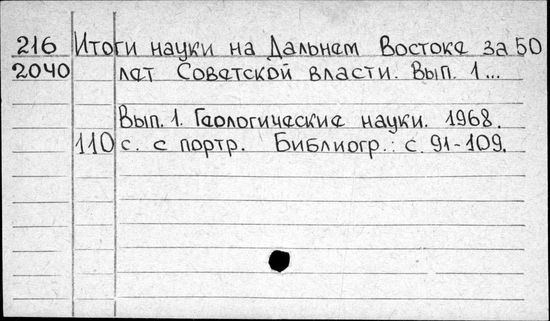 216 Итоги науки на Дальнем Востоке за 50
2040 лет Советской власти. Вып. 1...
Вып. 1. Геологические науки. 1968.
110 с. с портр. Библиогр.: с. 91-109.